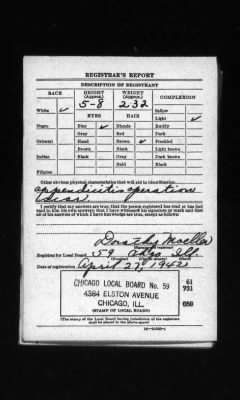 REGISTRAR'S REPORT
DESCRIPTION OF REGISTRANT
RACE
HEIGHT (Approx.)
WEIGHT (Approx.)
COMPLEXION
5-8
232
Sallow
White ✓
EYES
HAIR
Light ✓
Negro
Blue ✓
Blonde
Ruddy
Gray
Red
Dark
Oriental
Hazel
Brown ✓
Freckled
Brown
Black
Light brown
Indian
Black
Gray
Dark brown
Bald
Black
Filipino
Other obvious physical characteristics that will aid in identification
appendicitis operation
scar
I certify that my answers are true; that the person registered has read or has had
read to him his own answers; that I have witnessed his signature or mark and that
all of his answers of which I have knowledge are true, except as follows:
Dorothy Moeller
Registrar for Local Board 59 Ill.
Date of registration April 27, 1942
CHICAGO LOCAL BOARD No. 59
61
731
4364 ELSTON AVENUE
059
CHICAGO, ILL.
(STAMP OF LOCAL BOARD)
(The stamp of the Local Board having jurisdiction of the registrant
shall be placed in the above space)